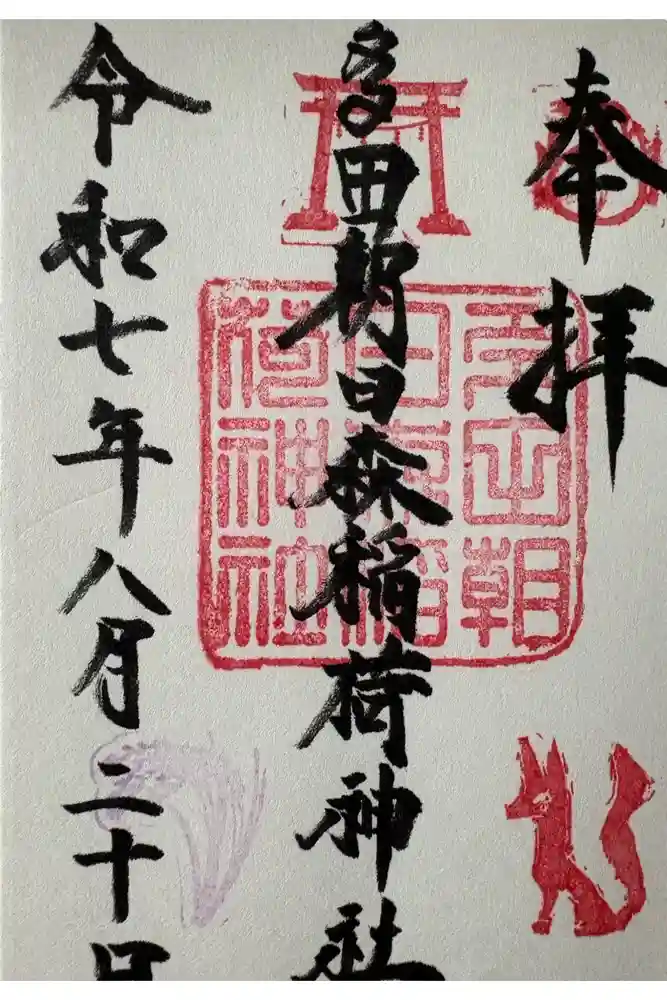 奉拝
多田朝日森稲荷神社
多田朝日森稲荷神社
令和七年八月二十日